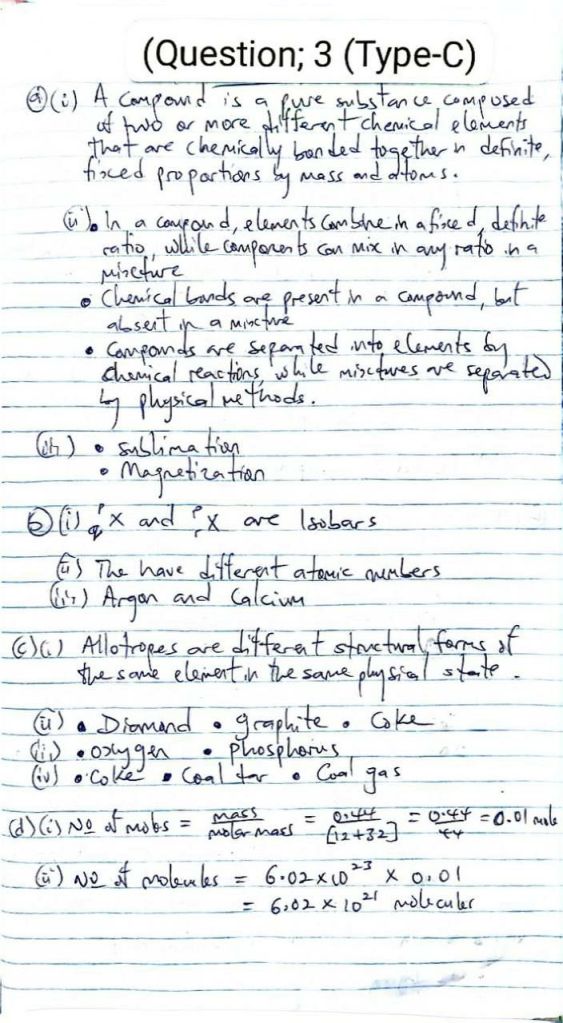 (Question; 3 (Type-C)
(a)(i) A compound is a pure substance composed
of two or more different chemical elements
that are chemically bonded together in definite,
fixed proportions by mass and atoms.
(ii) • In a compound, elements combine in a fixed, definite
ratio, while components can mix in any ratio in a
mixture
• Chemical bonds are present in a compound, but
absent in a mixture
• Compounds are separated into elements by
chemical reactions, while mixtures are separated
by physical methods.
(iii) • sublimation
• Magnetization
(b)(i) ᵖqX and ᵖrX are Isobars
(ii) The have different atomic numbers
(iii) Argon and Calcium
(c)(i) Allotropes are different structural forms of
the same element in the same physical state.
(ii) • Diamond • graphite • Coke
(iii) • oxygen • phosphorus
(iv) • Coke • Coal tar • Coal gas
(d)(i) No of mols = mass / molar mass = 0.44 / [12+32] = 0.44 / 44 = 0.01 mole
(ii) No of molecules = 6.02 x 10²³ x 0.01
= 6.02 x 10²¹ molecules